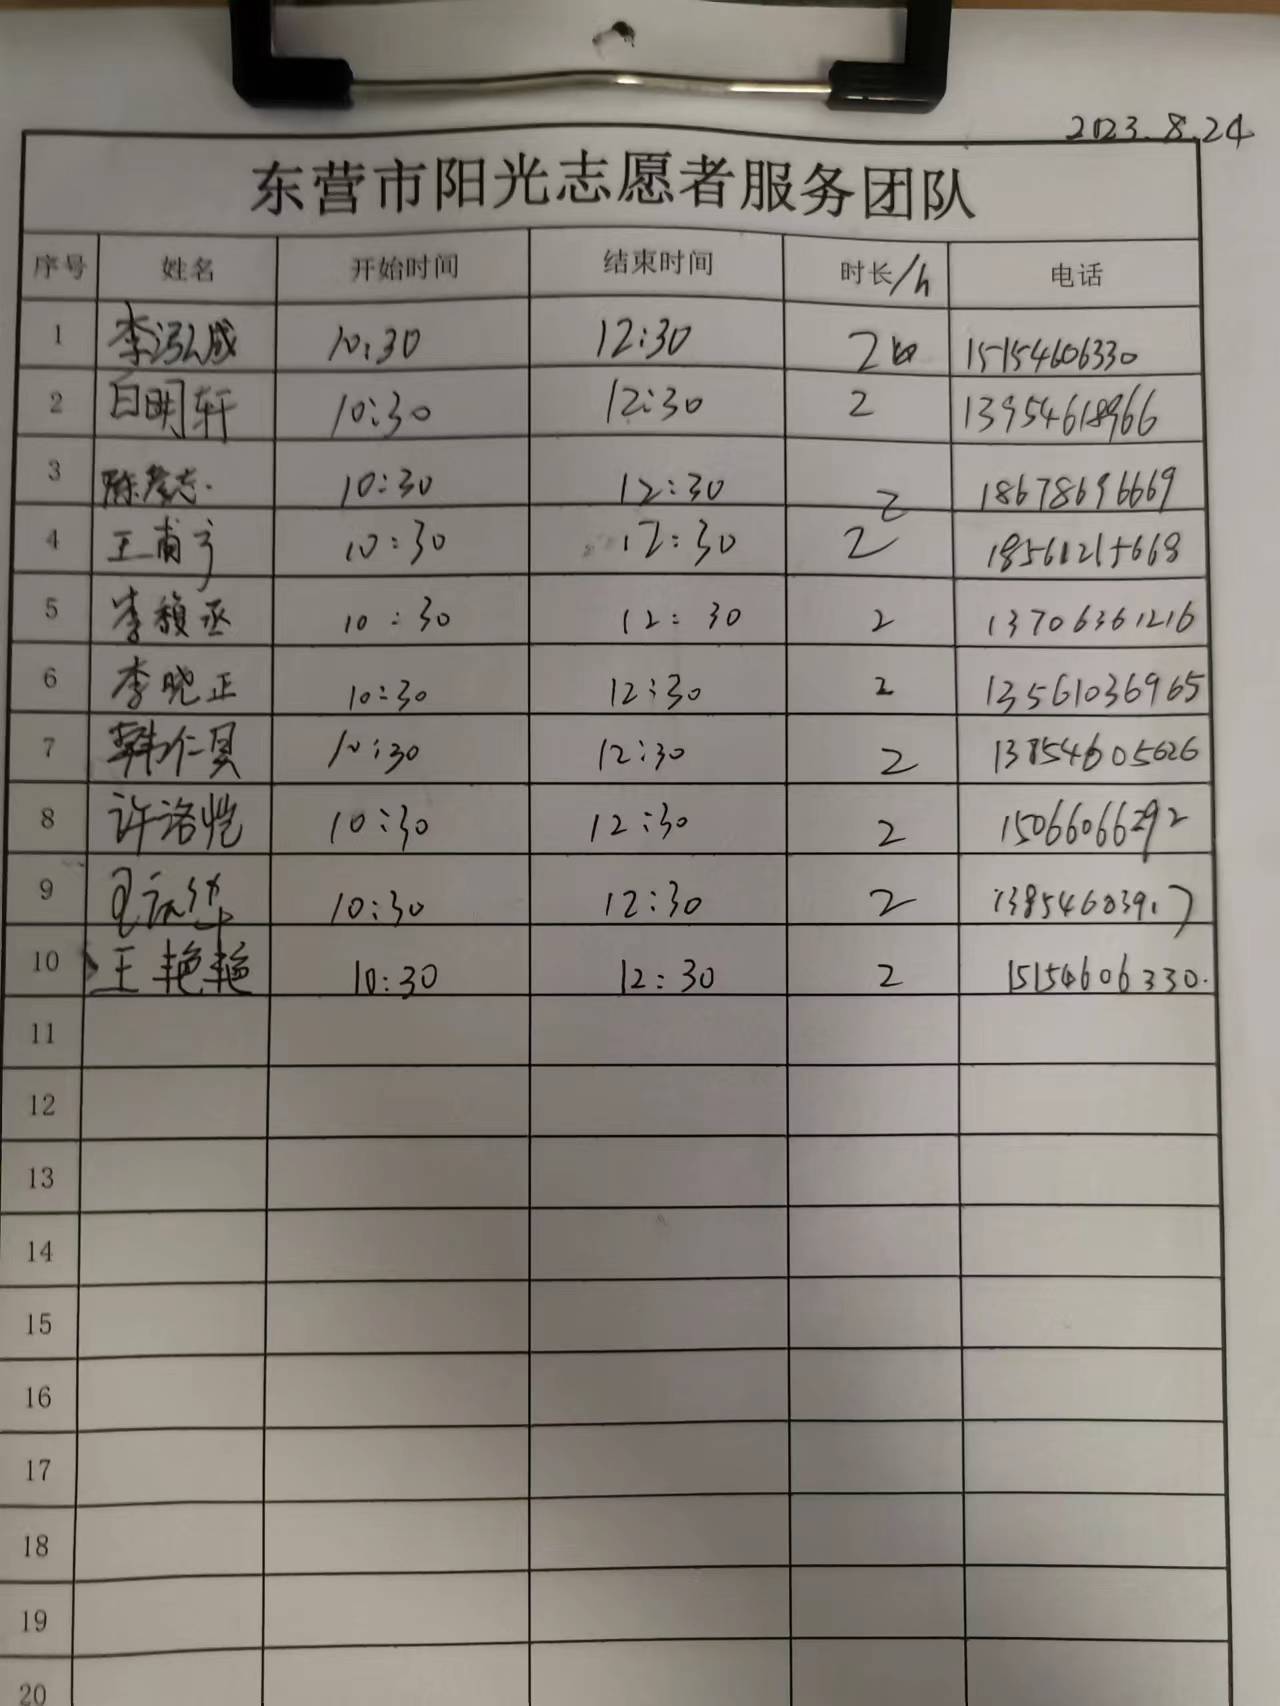 2023.8.24
东营市阳光志愿者服务团队
序号 姓名 开始时间 结束时间 时长/h 电话
1 李泓成 10:30 12:30 2 15154606330
2 白明轩 10:30 12:30 2 13954618966
3 陈彦志 10:30 12:30 2 18678696669
4 王甫宁 10:30 12:30 2 18561215668
5 李颖丞 10:30 12:30 2 13706361216
6 李晓正 10:30 12:30 2 13561036965
7 韩仁昊 10:30 12:30 2 13854605626
8 许洛恺 10:30 12:30 2 15066066292
9 10:30 12:30 2
10 王艳艳 10:30 12:30 2 15154606330.
11
12
13
14
15
16
17
18
19
20